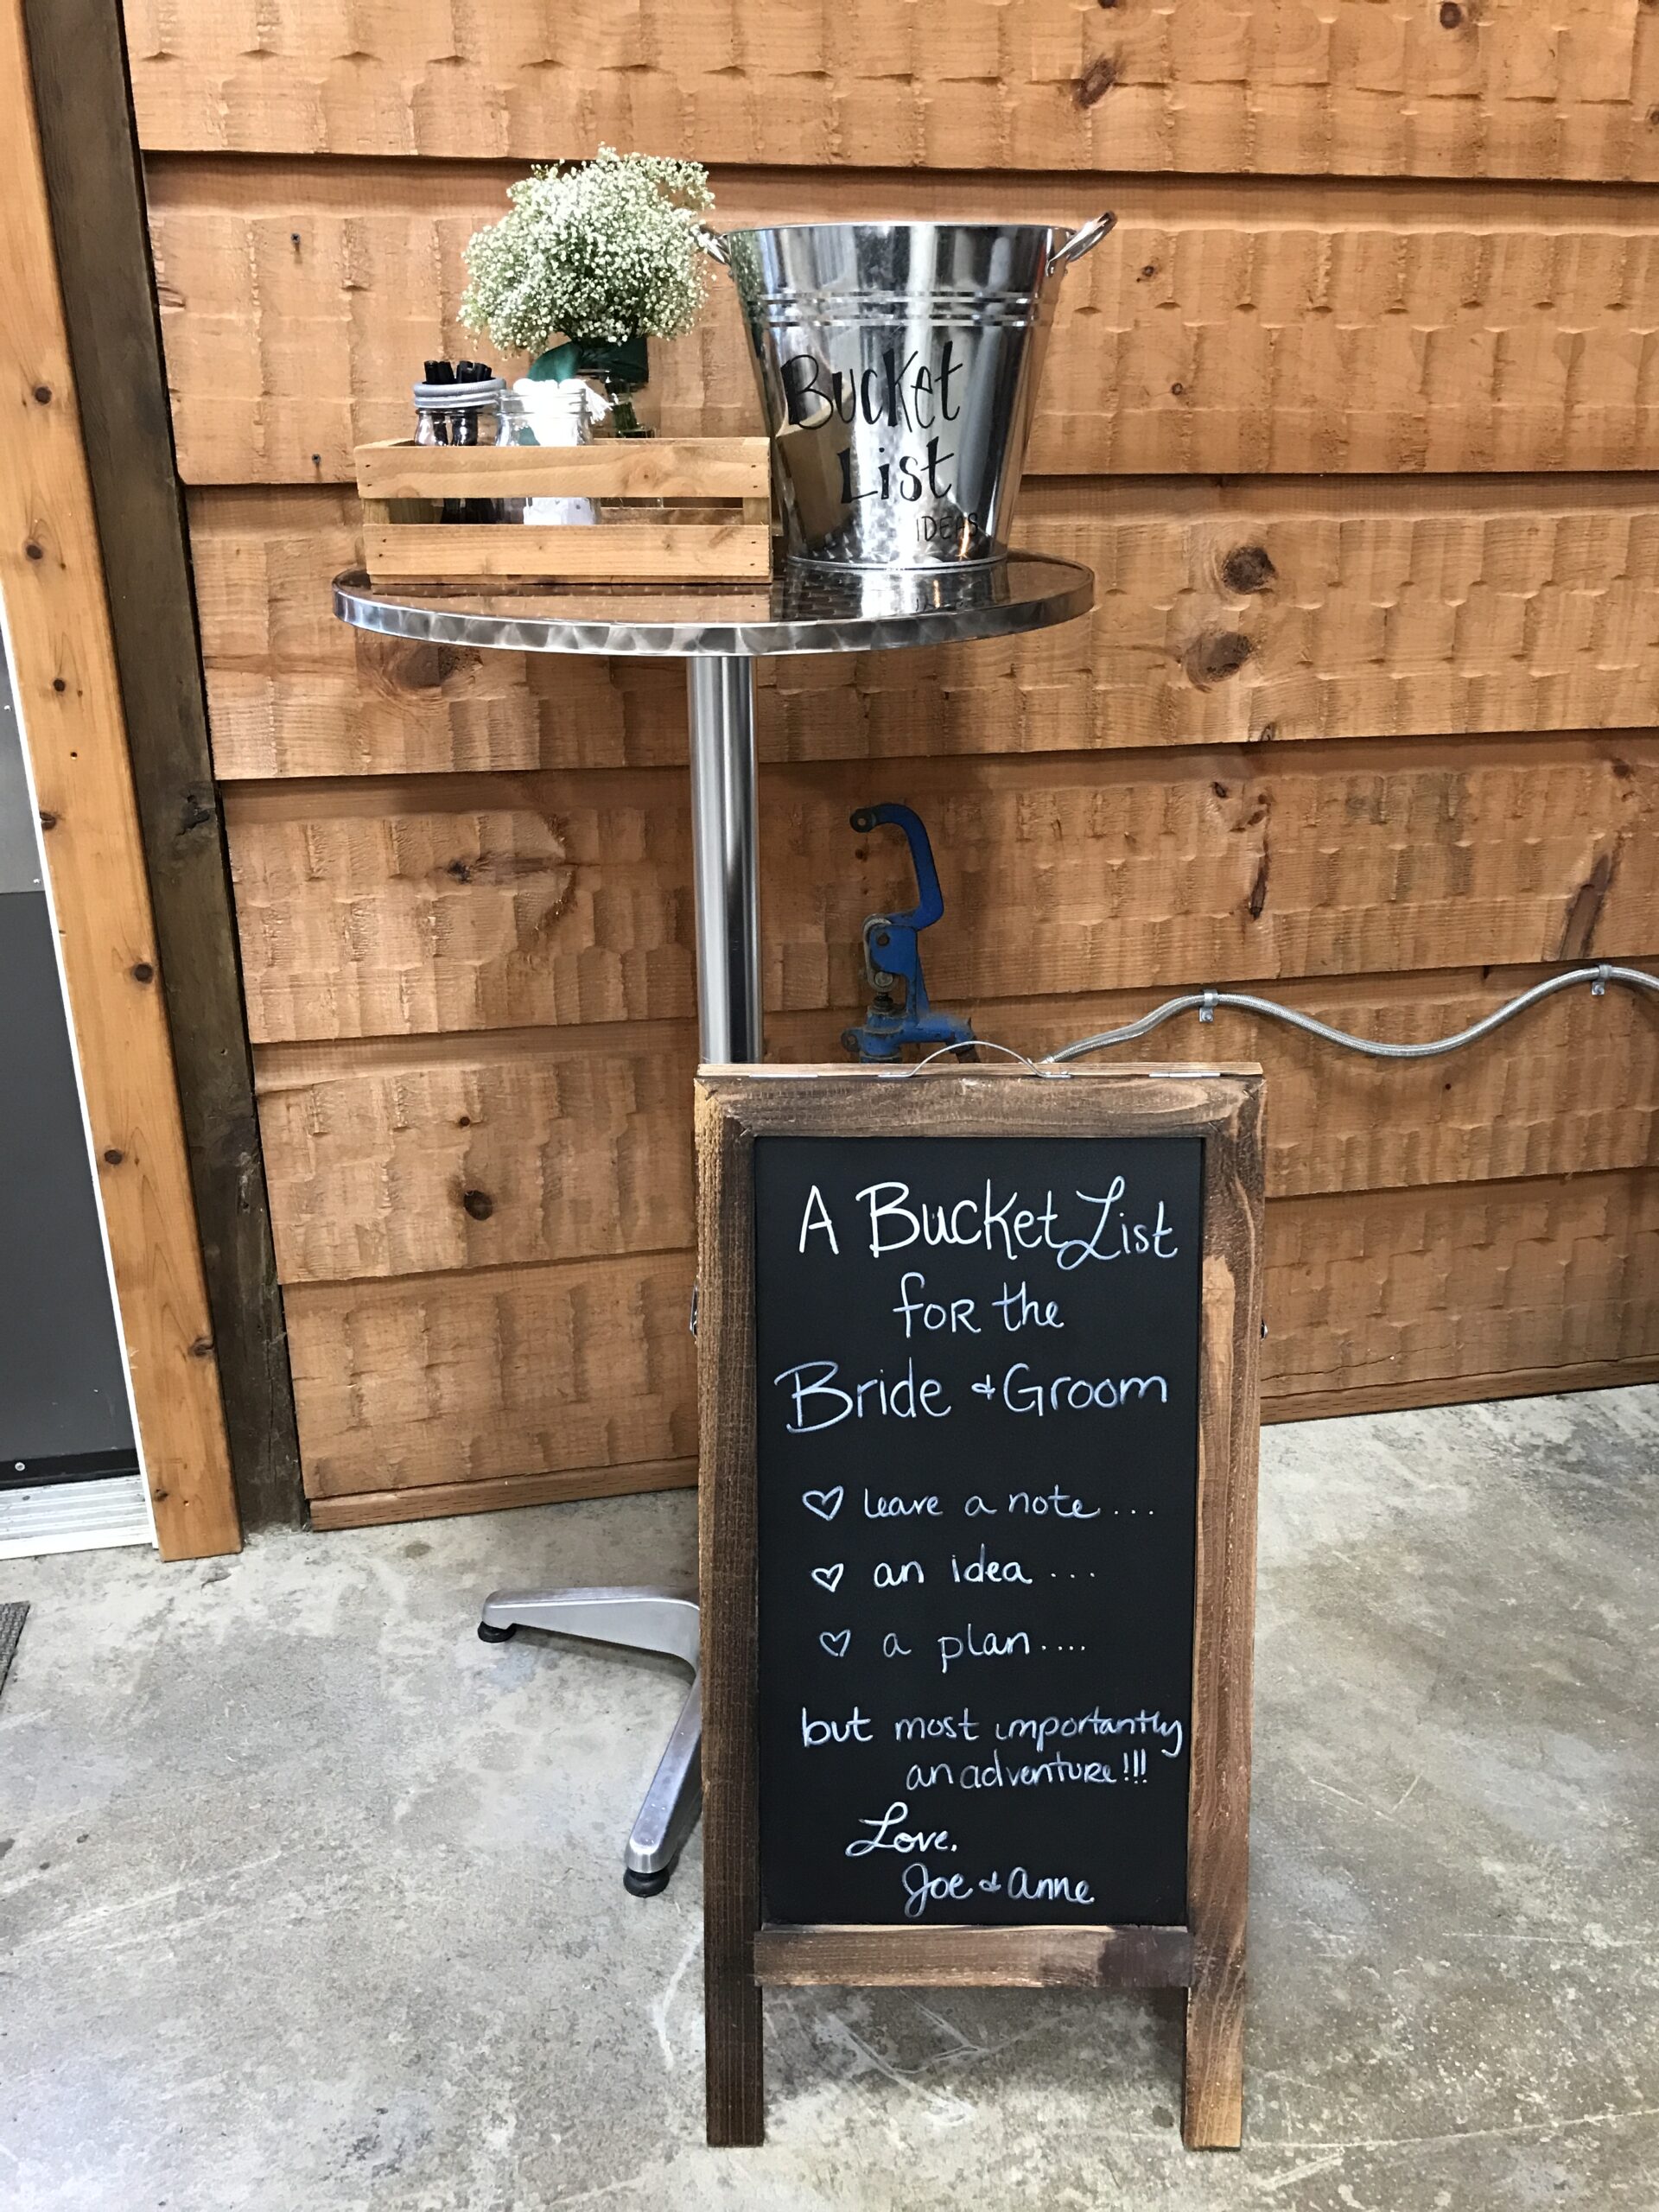 Bucket
List
IDEAS
A Bucket List
for the
Bride & Groom
♡ leave a note...
♡ an idea...
♡ a plan....
but most importantly
an adventure!!!
Love,
Joe & Anne